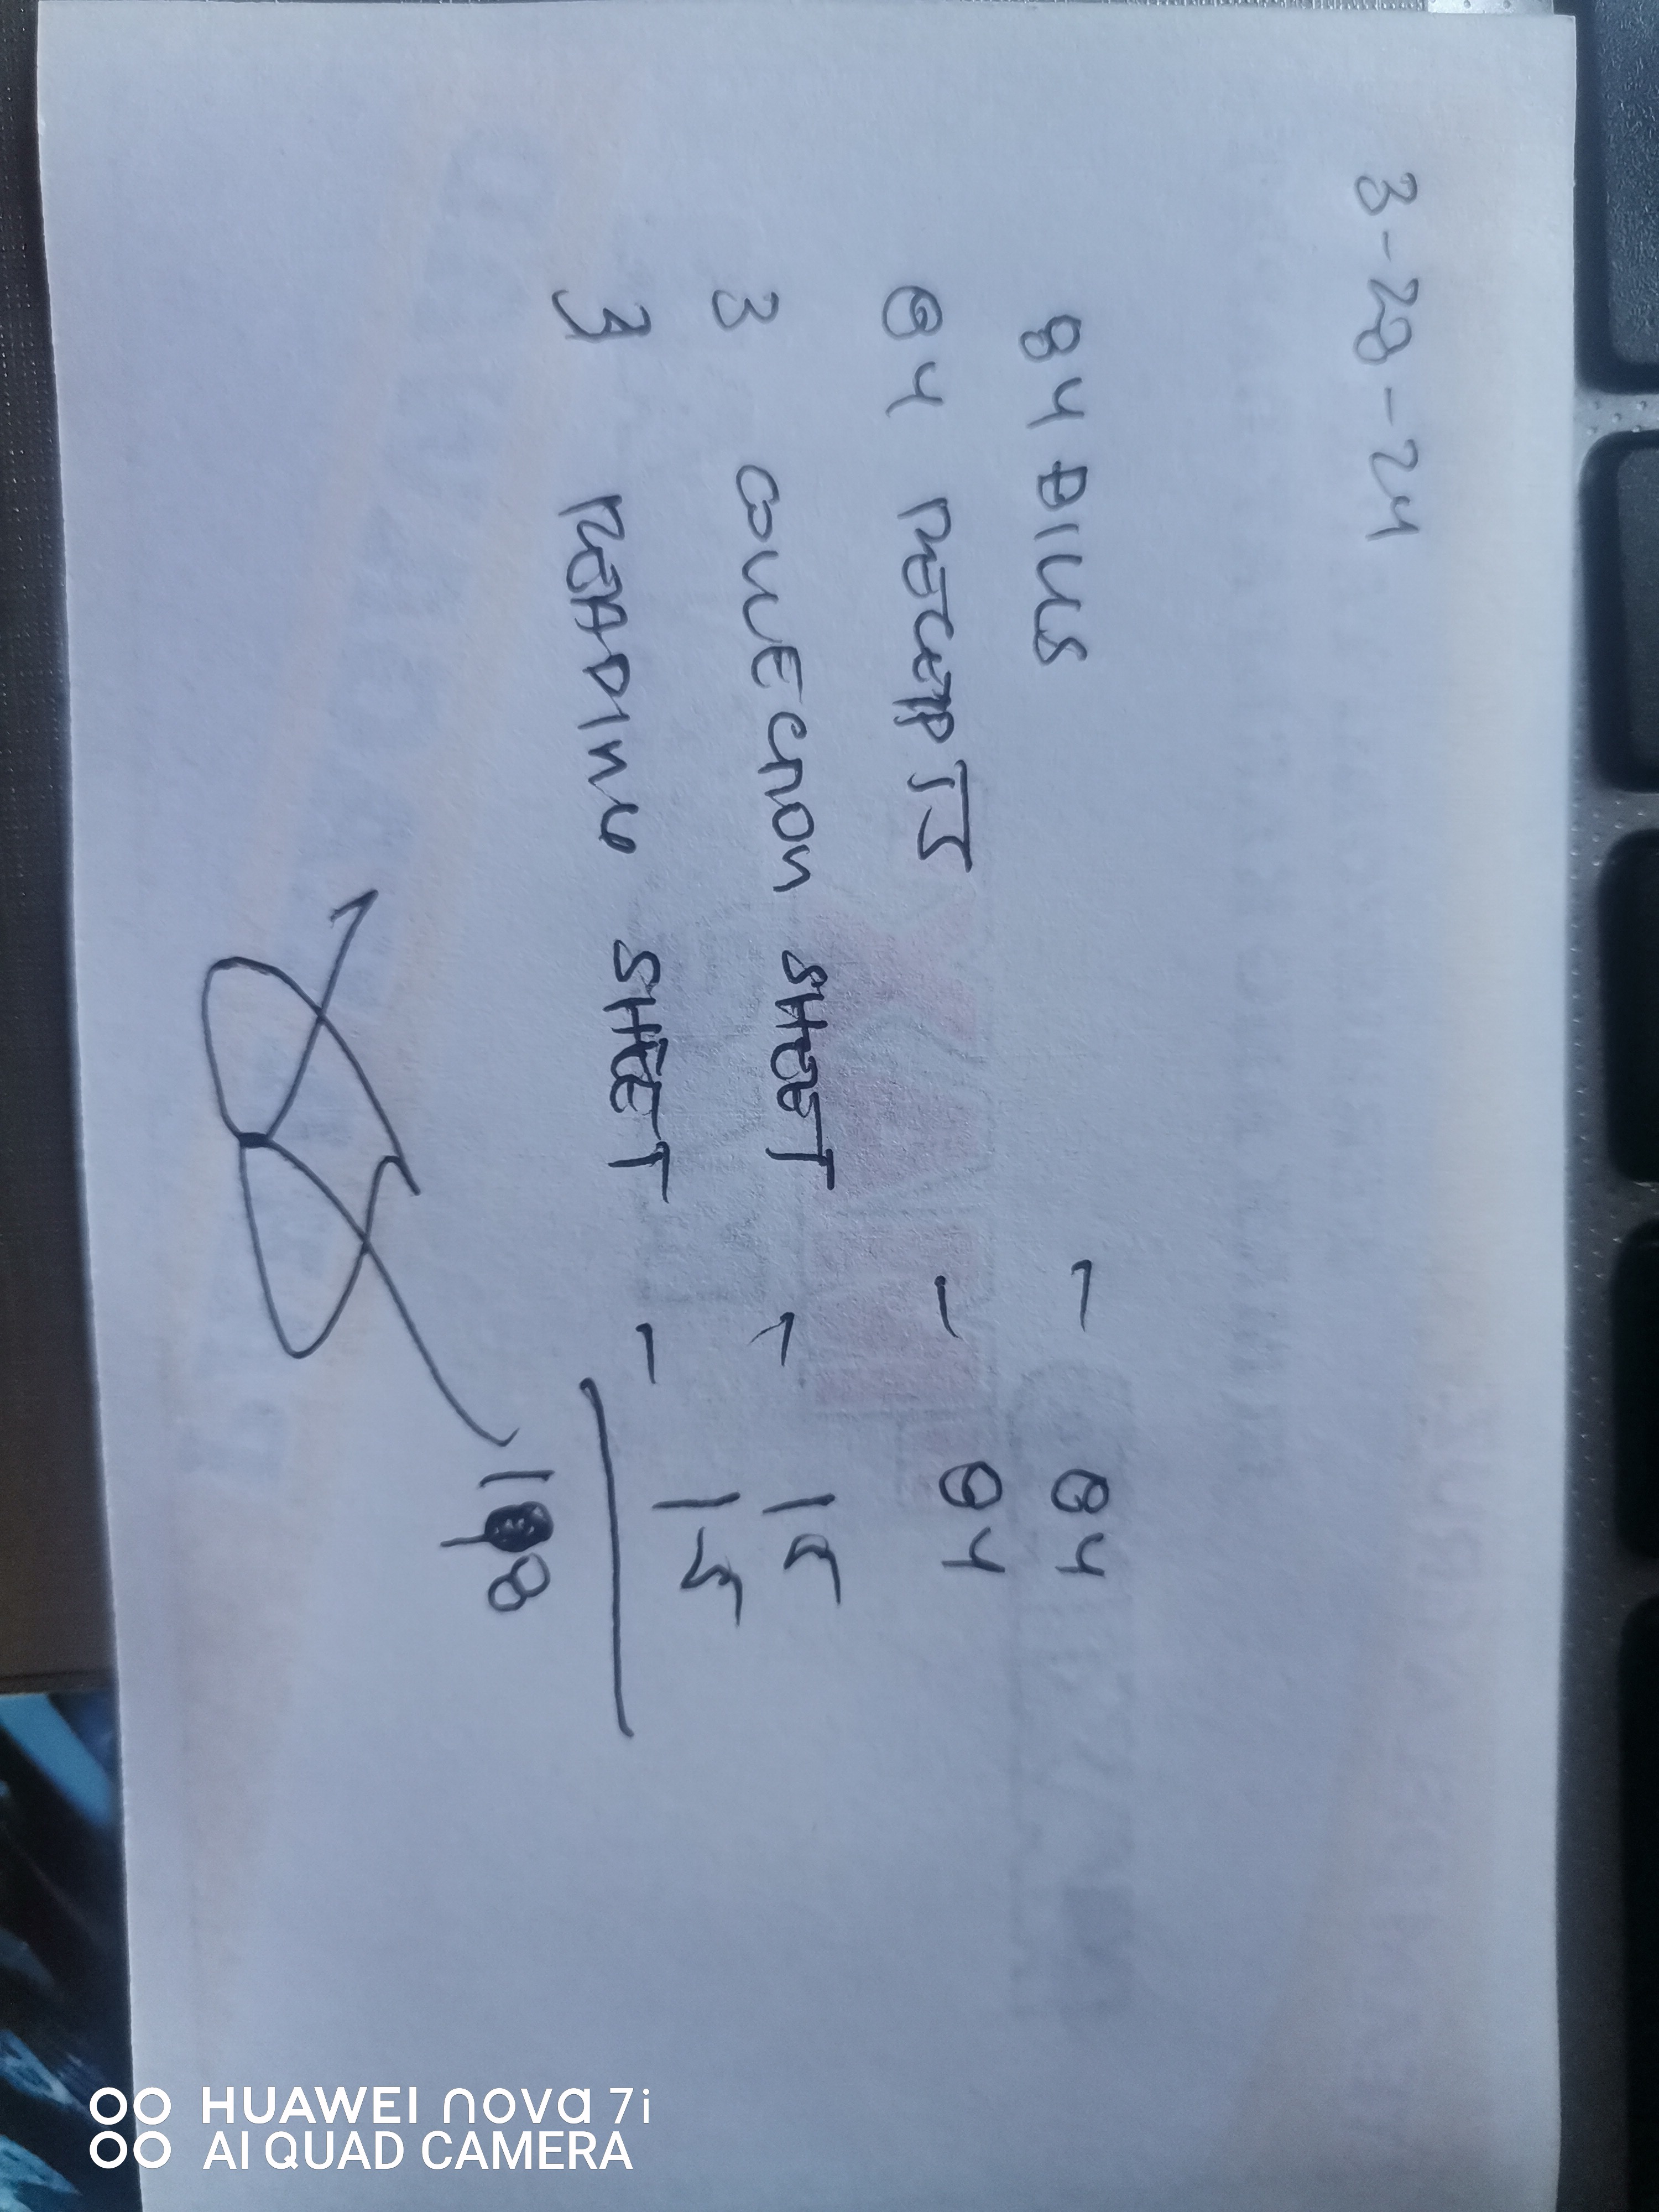 3-28-24
84 BILLS - 84
84 RECEIPTS - 84
3 COLLECTION SHEET - 15
3 READING SHEET - 15
198
HUAWEI nova 7i
AI QUAD CAMERA